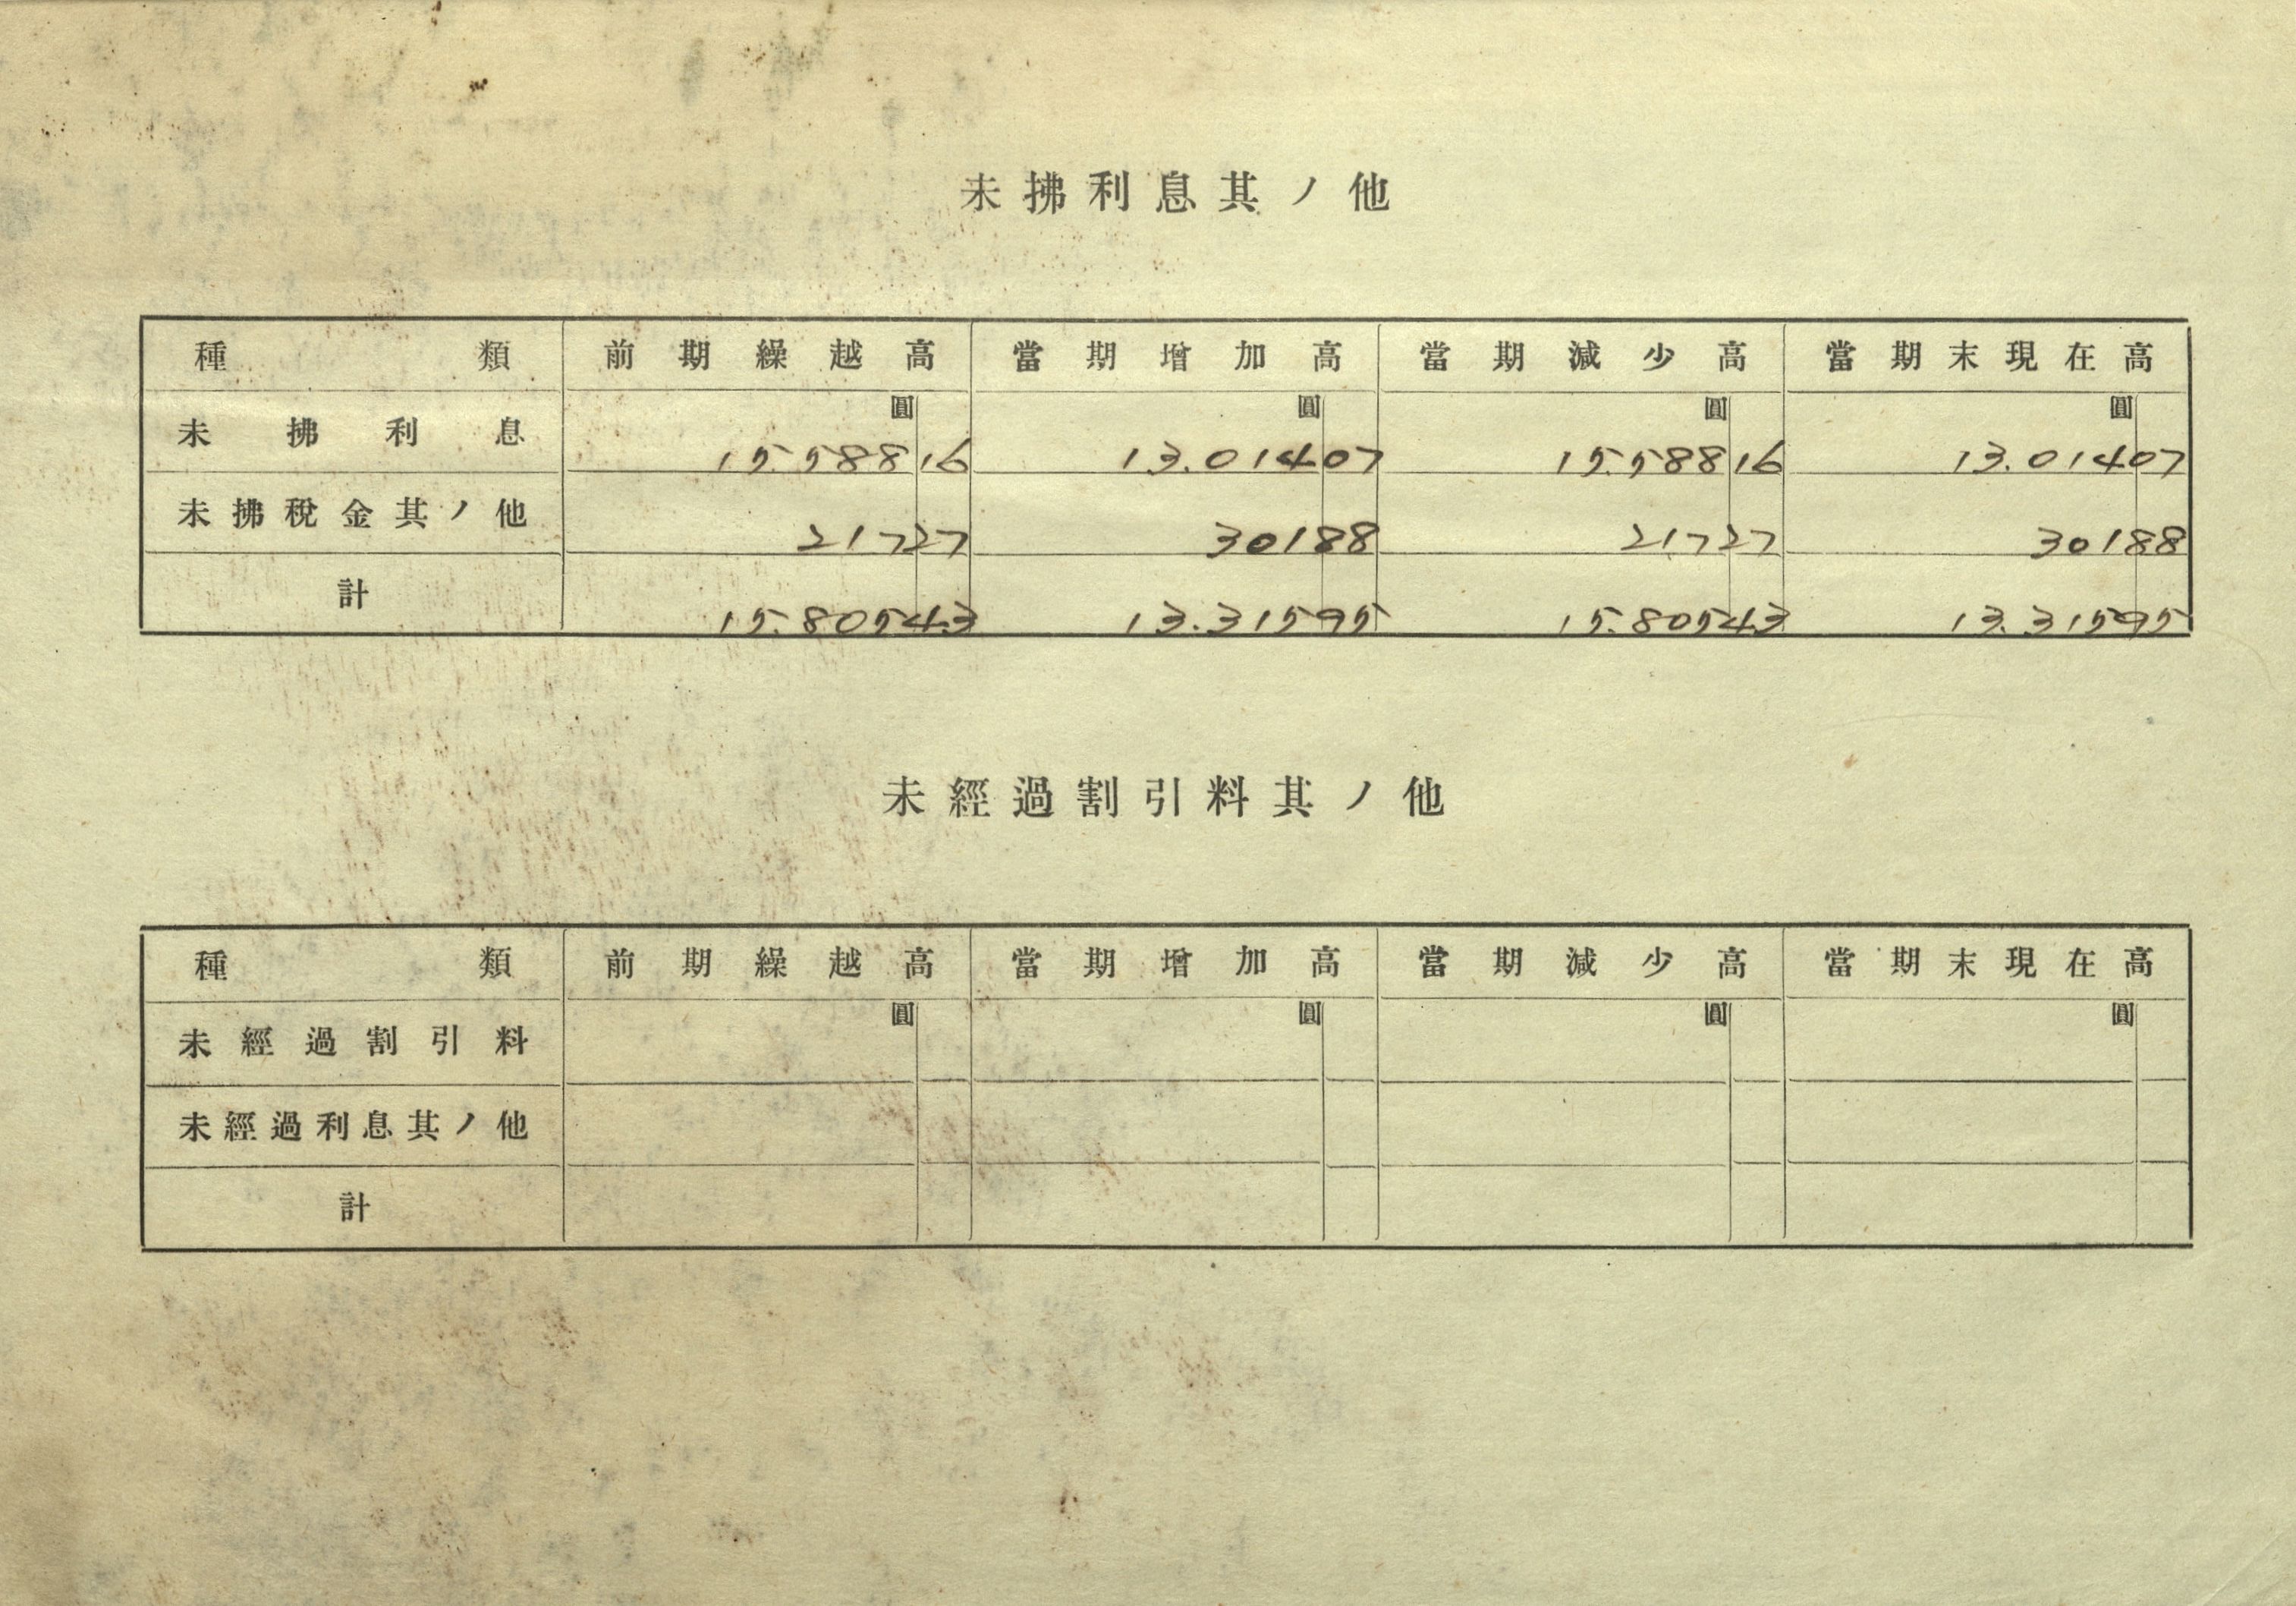 未拂利息其ノ他
種類 前期繰越高 當期增加高 當期減少高 當期末現在高
圓 圓 圓 圓
未拂利息 15.588 16 13.014 07 15.588 16 13.014 07
未拂稅金其ノ他 217 27 301 88 217 27 301 88
計 15.805 43 13.315 95 15.805 43 13.315 95
未經過割引料其ノ他
種類 前期繰越高 當期增加高 當期減少高 當期末現在高
圓 圓 圓 圓
未經過割引料
未經過利息其ノ他
計